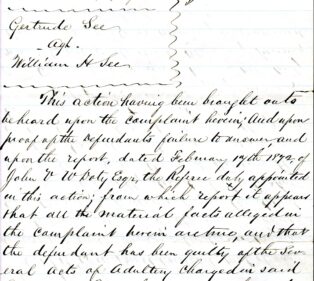 Gertrude Gee
Agt.
William H Gee
This action having been brought onto
be heard upon the complaint herein, And upon
proof of the defendants failure to answer and
upon the report, dated February 19th 1872, of
John V W Doty Esqr, the Referee duly appointed
in this action; from which report it appears
that all the material facts alleged in
the complaint herein are true, and that
the defendant has been guilty of the Sev
eral acts of adultery charged in said